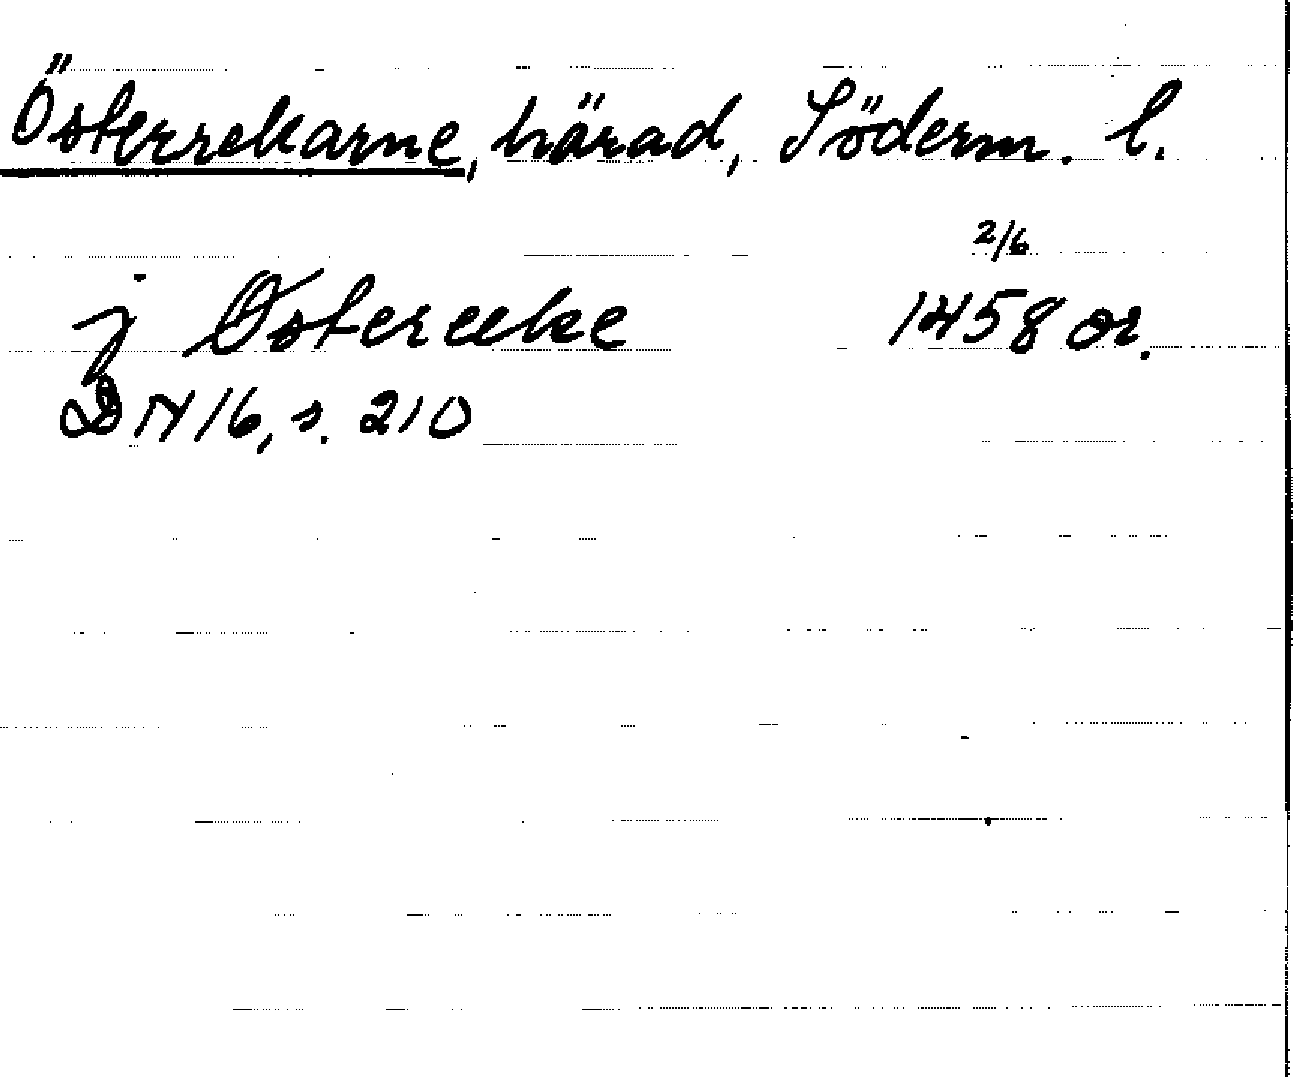 Österrekarne, härad, Söderm. l.
2/6
j Østerecke 1458 or.
DN 16, s. 210